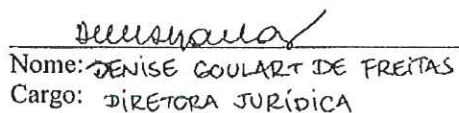 Nome: DENISE GOULART DE FREITAS
Cargo: DIRETORA JURÍDICA